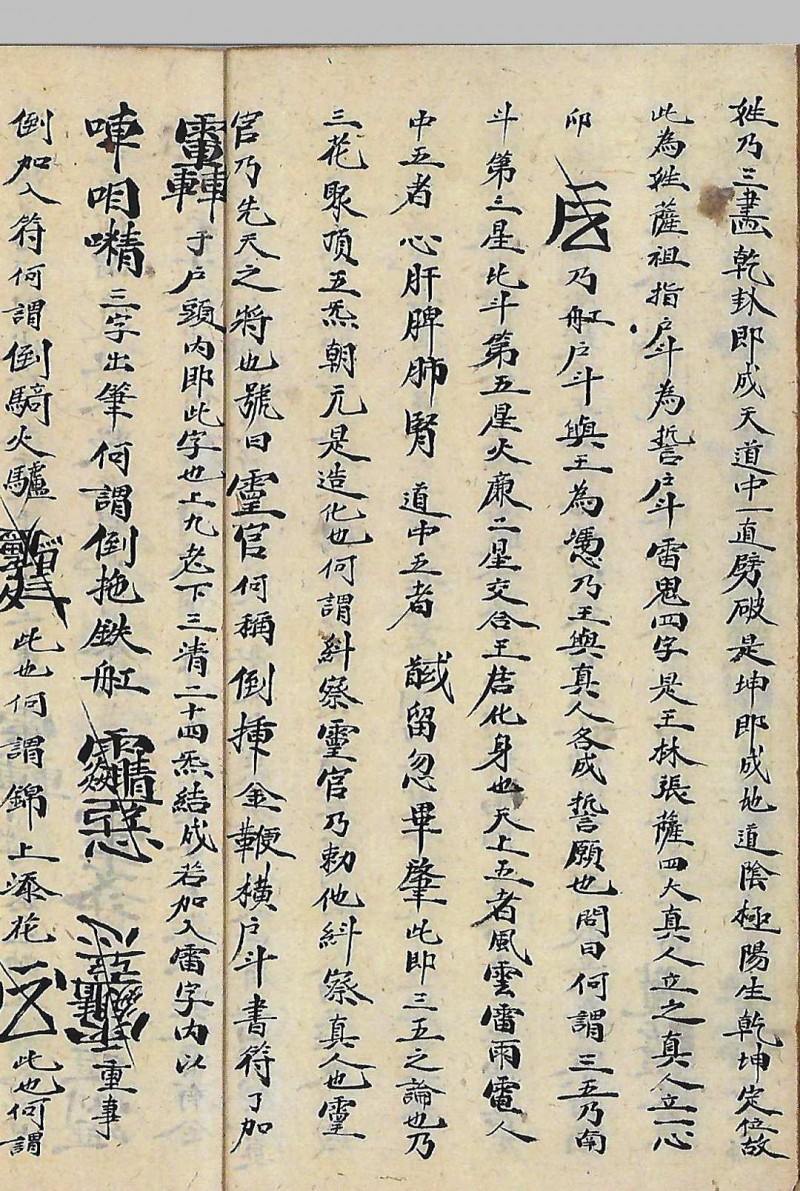 姓乃三畫乾卦即成天道中一直劈破是坤即成地道陰極陽生乾坤定位故
此為姓薩祖指户斗為誓户斗雷鬼四字是王林張薩四大真人立之真人立一心
卯 乃舡户斗與王為憑乃王與真人各成誓願也問曰何謂三五乃南
斗第三星北斗第五星火廉二星交合王居化身也天上五者風雲雷雨電人
中五者心肝脾肺腎道中五者 留忽畢肇此即三五之論也乃
三花聚頂五炁朝元是造化也何謂糾察靈官乃勅他糾察真人也靈
官乃先天之將也號曰靈官何稱倒揰金鞭橫户斗書符了加
于户頭內即此字也上九老下三清二十四炁結成若加入雷字內以
三字出筆何謂倒拖鉄舡 重事
倒加入符何謂倒騎火驢 此也何謂錦上添花 此也何謂